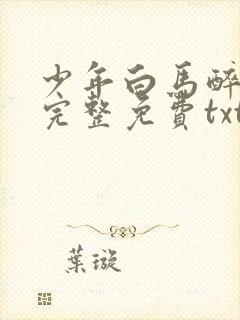 少年白馬醉
完整免費txt
葉璇